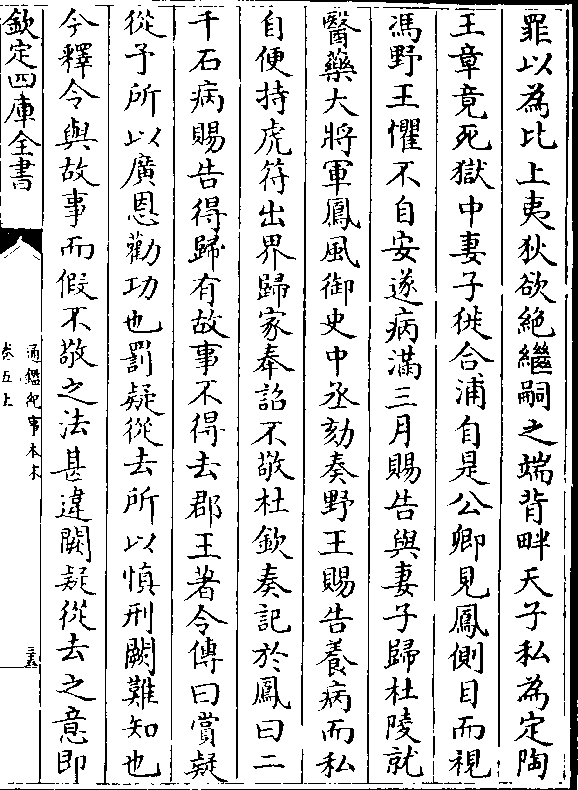 罪以為比上夷狄欲絶繼嗣之端背畔天子私為定陶
王章竟死獄中妻子徙合浦自是公卿見鳳側目而視
馮野王懼不自安遂病滿三月賜告與妻子歸杜陵就
醫藥大將軍鳳風御史中丞劾奏野王賜告養病而私
自便持虎符出界歸家奉詔不敬杜欽奏記於鳳曰二
千石病賜告得歸有故事不得去郡王著令傳曰賞疑
從予所以廣恩勸功也罰疑從去所以慎刑闕難知也
今釋令與故事而假不敬之法甚違闕疑從去之意即
欽定四庫全書
通鑑紀事本末
卷五上